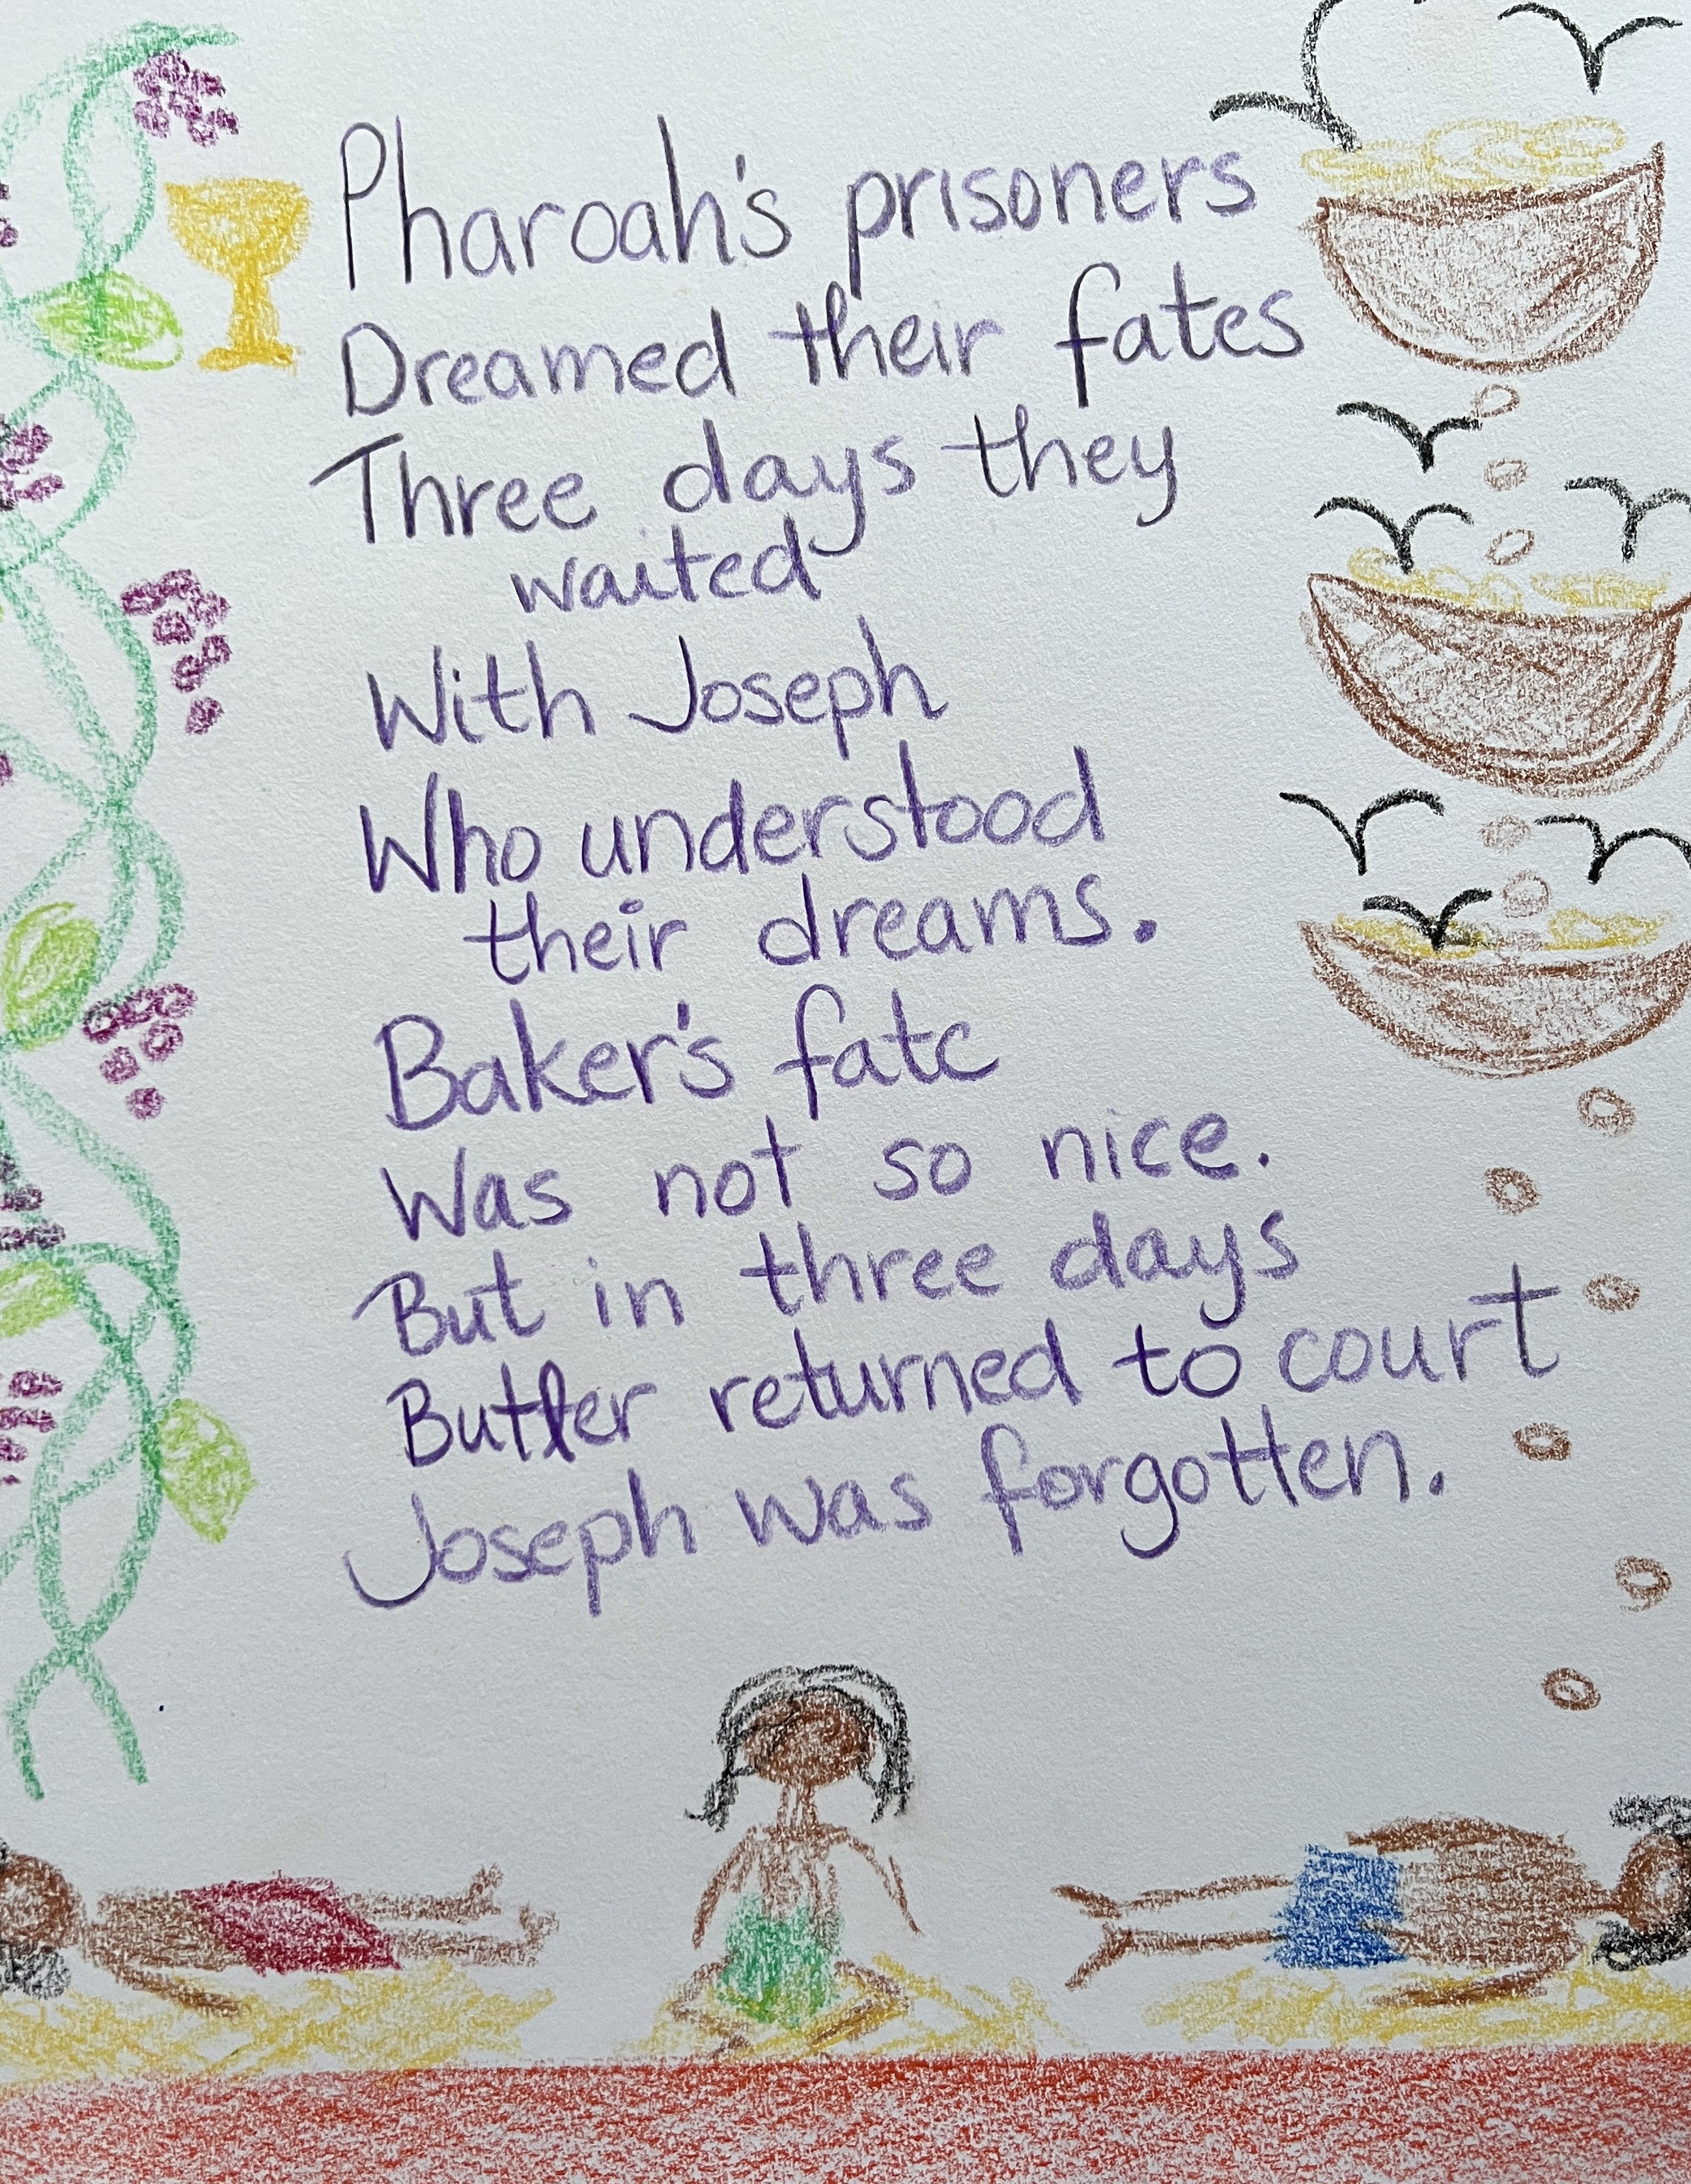 Pharoah's prisoners
Dreamed their fates
Three days they
waited
With Joseph
Who understood
their dreams.
Baker's fate
Was not so nice.
But in three days
Butler returned to court
Joseph was forgotten.